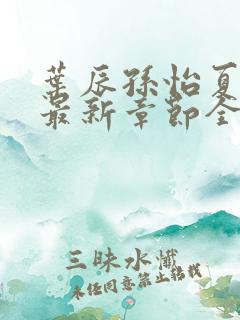 叶辰孙怡夏
最新章节全
三昧水懺
未经同意禁止转载